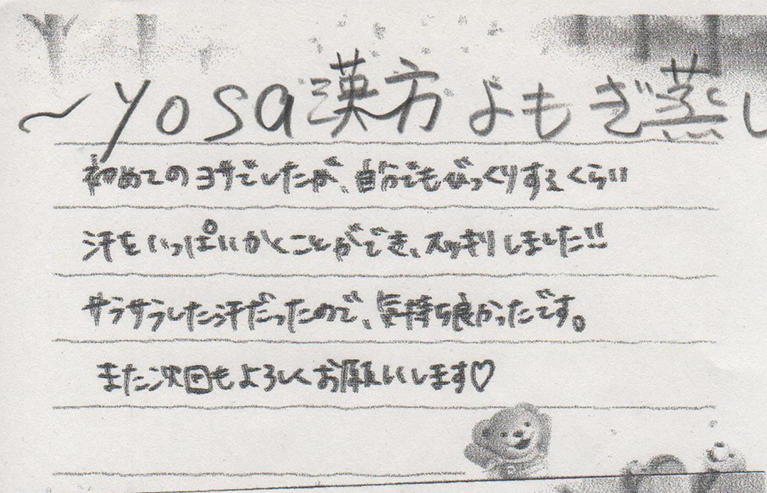 ～yosa漢方よもぎ蒸し
初めてのヨサでしたが、自分でもびっくりするくらい
汗をいっぱいかくことができ、スッキリしました!!
サラサラした汗だったので、気持ち良かったです。
また次回もよろしくお願いします♡